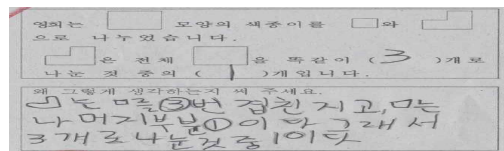 영희는 모양의 색종이를 와
으로 나누었습니다.
은 전체 을 똑같이 ( 3 )개로
나눈 것 중의 ( 1 )개입니다.
왜 그렇게 생각하는지 써 주세요.
는 ③번 접친 지고, ㅁ는
나머지부분①이다 그래서
3개로 나눈것중 1이다